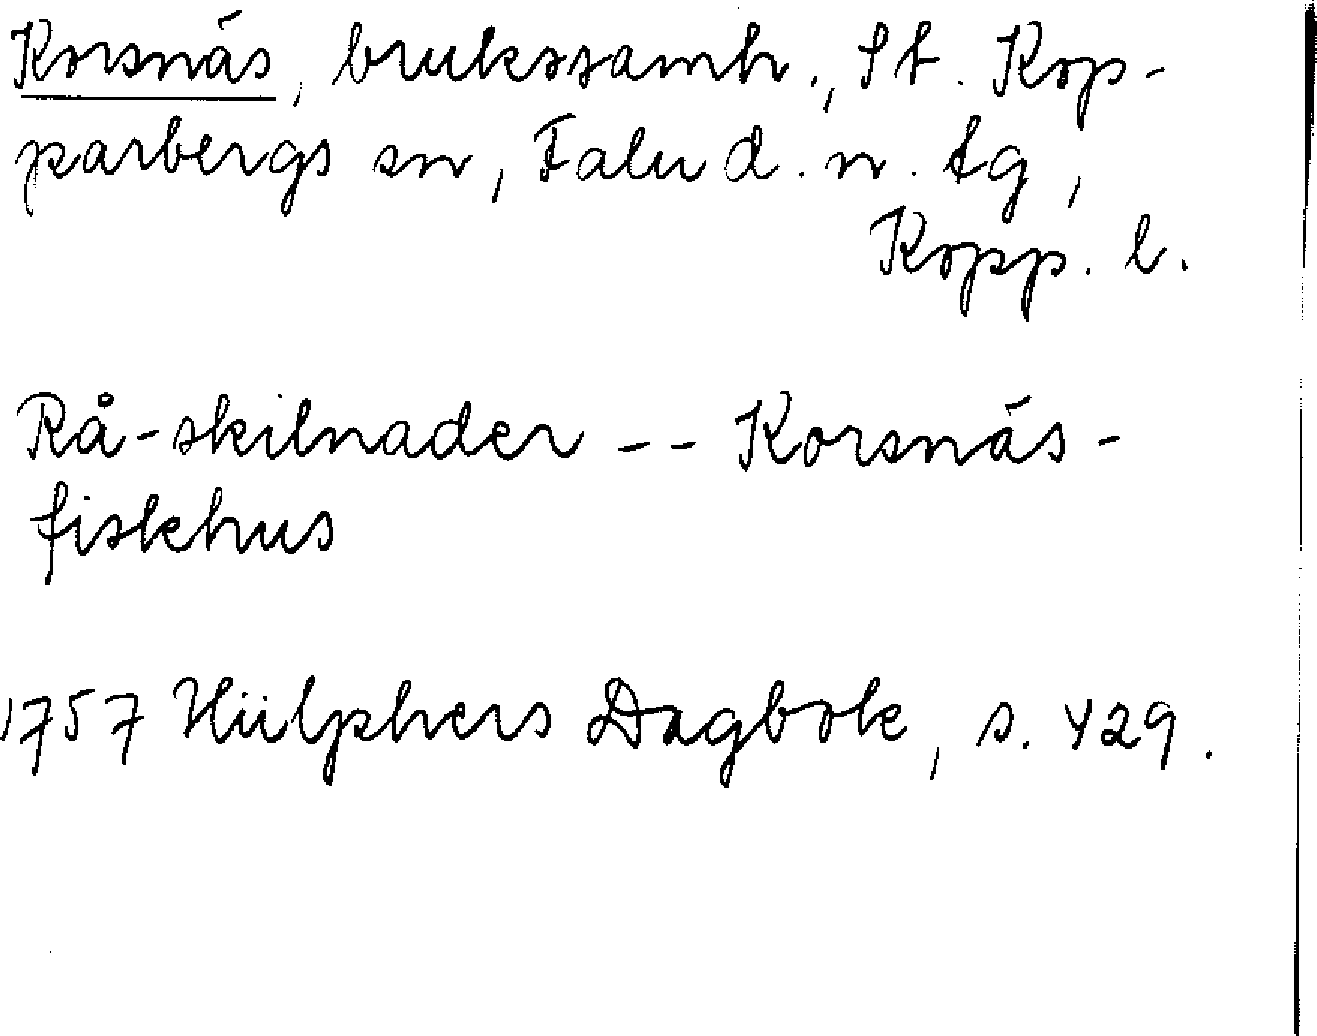 Korsnäs, brukssamh., St. Kop-
parbergs sn, Falu d. n. tg,
Kopp. l.
Rå-skilnader -- Korsnäs-
fiskhus
1757 Hülphers Dagbok, s. 429.